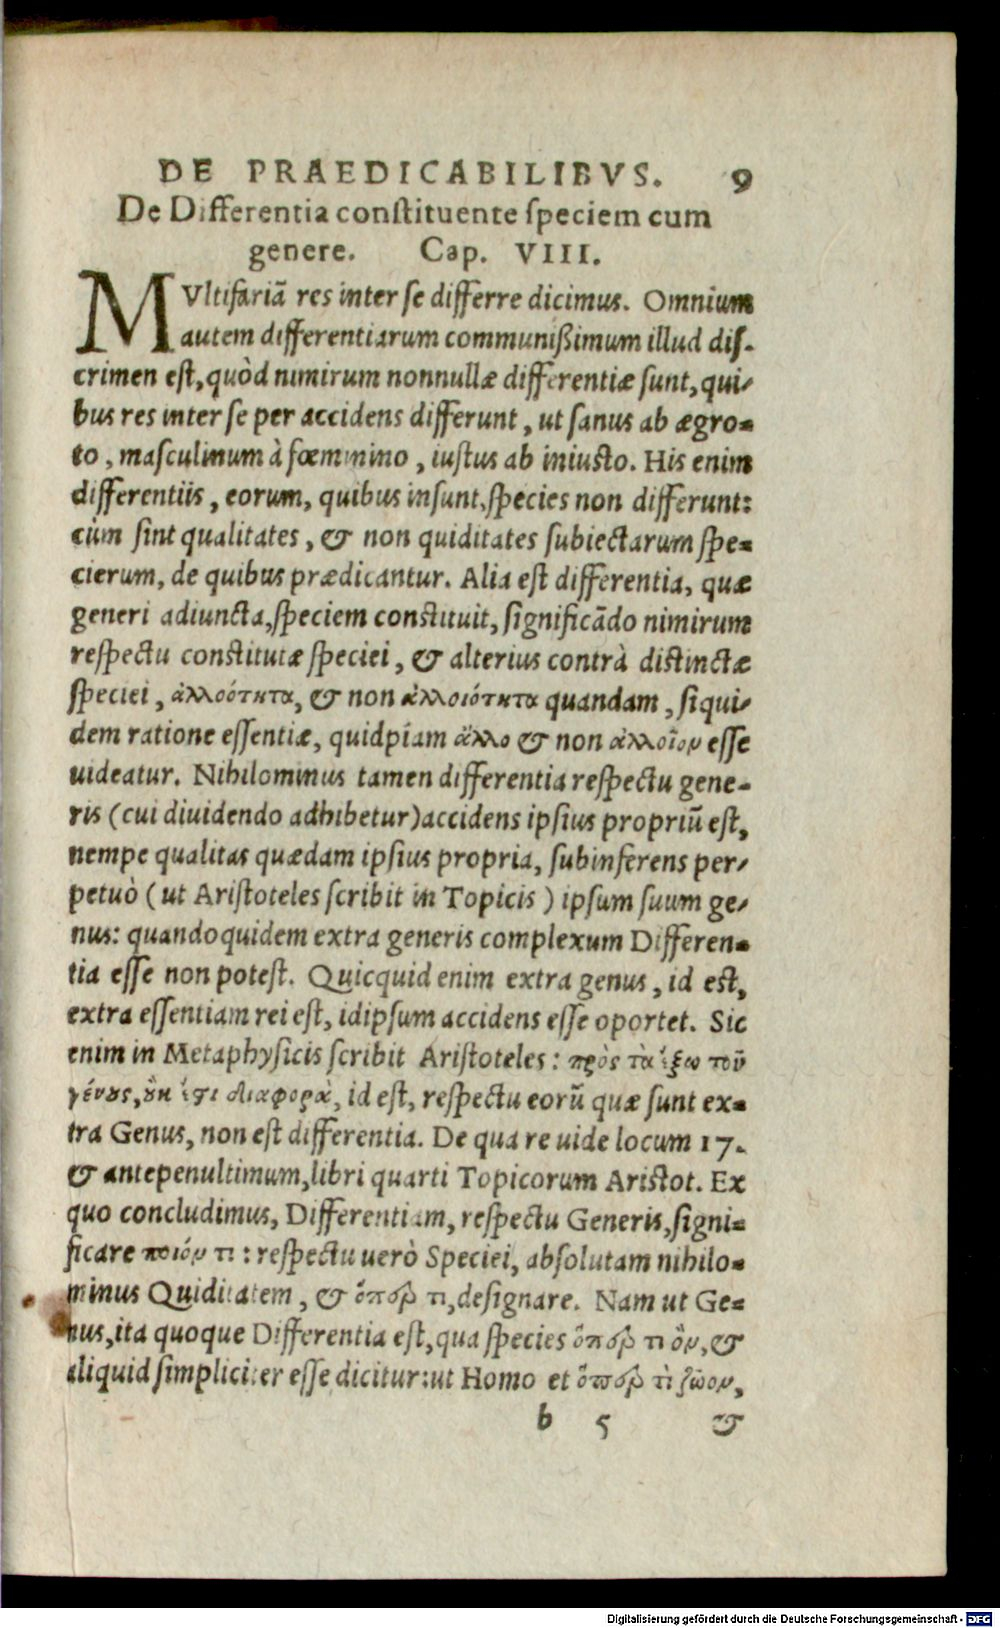 DE PRAEDICABILIBVS. 9
De Differentia constituente speciem cum
genere. Cap. VIII.
MVltifariā res inter se differre dicimus. Omnium
autem differentiarum communißimum illud dis-
crimen est, quòd nimirum nonnullæ differentiæ sunt, qui-
bus res inter se per accidens differunt, ut sanus ab ægro-
to, masculinum à fœminino, iustus ab iniusto. His enim
differentiis, eorum, quibus insunt, species non differunt:
cùm sint qualitates, & non quiditates subiectarum spe-
cierum, de quibus prædicantur. Alia est differentia, quæ
generi adiuncta, speciem constituit, significādo nimirum
respectu constitutæ speciei, & alterius contrà distinctæ
speciei, ἀλλοότητα, & non ἀλλοιότητα quandam, siqui-
dem ratione essentiæ, quidpiam ἄλλο & non ἀλλοῖον esse
uideatur. Nihilominus tamen differentia respectu gene-
ris (cui diuidendo adhibetur) accidens ipsius propriū est,
nempe qualitas quædam ipsius propria, subinferens per-
petuò (ut Aristoteles scribit in Topicis) ipsum suum ge-
nus: quandoquidem extra generis complexum Differen-
tia esse non potest. Quicquid enim extra genus, id est,
extra essentiam rei est, idipsum accidens esse oportet. Sic
enim in Metaphysicis scribit Aristoteles: πρὸς τὰ ἔξω τοῦ
γένους, οὐκ ἔστι διαφορὰ, id est, respectu eorū quæ sunt ex-
tra Genus, non est differentia. De qua re uide locum 17.
& antepenultimum, libri quarti Topicorum Aristot. Ex
quo concludimus, Differentiam, respectu Generis, signi-
ficare ποιόν τι: respectu uerò Speciei, absolutam nihilo-
minus Quiditatem, & ὅπερ τι, designare. Nam ut Ge-
nus, ita quoque Differentia est, qua species ὅπερ τι ὂν, &
aliquid simpliciter esse dicitur: ut Homo et ὅπερ τὶ ζῶον,
b 5 &
Digitalisierung gefördert durch die Deutsche Forschungsgemeinschaft - DFG